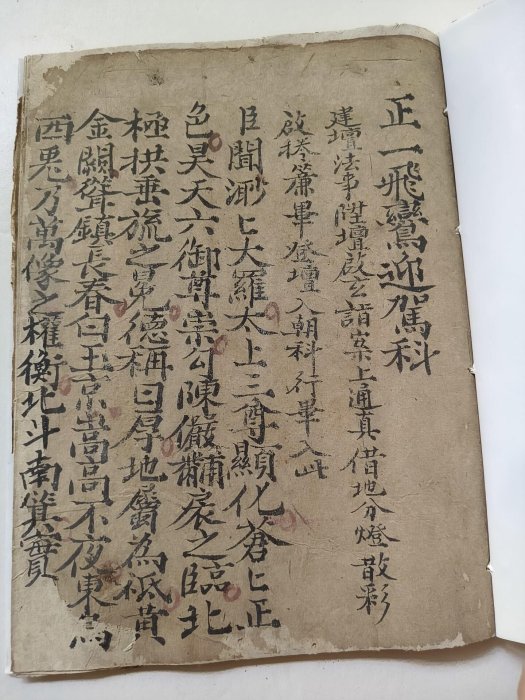 正一飛鸞迎駕科
建壇法事陞壇啟玄請案上通真借地分燈散彩
啟捲簾畢登壇入朝科行畢入此
臣聞渺匕大羅太上三尊顯化蒼匕正
色昊天六御尊崇勾陳儼黼扆之臨北
極拱垂旒之冕德稱曰厚地屬為祇黃
金闕聳鎮長春白玉京高高不夜東烏
西兎乃萬像之權衡北斗南箕實